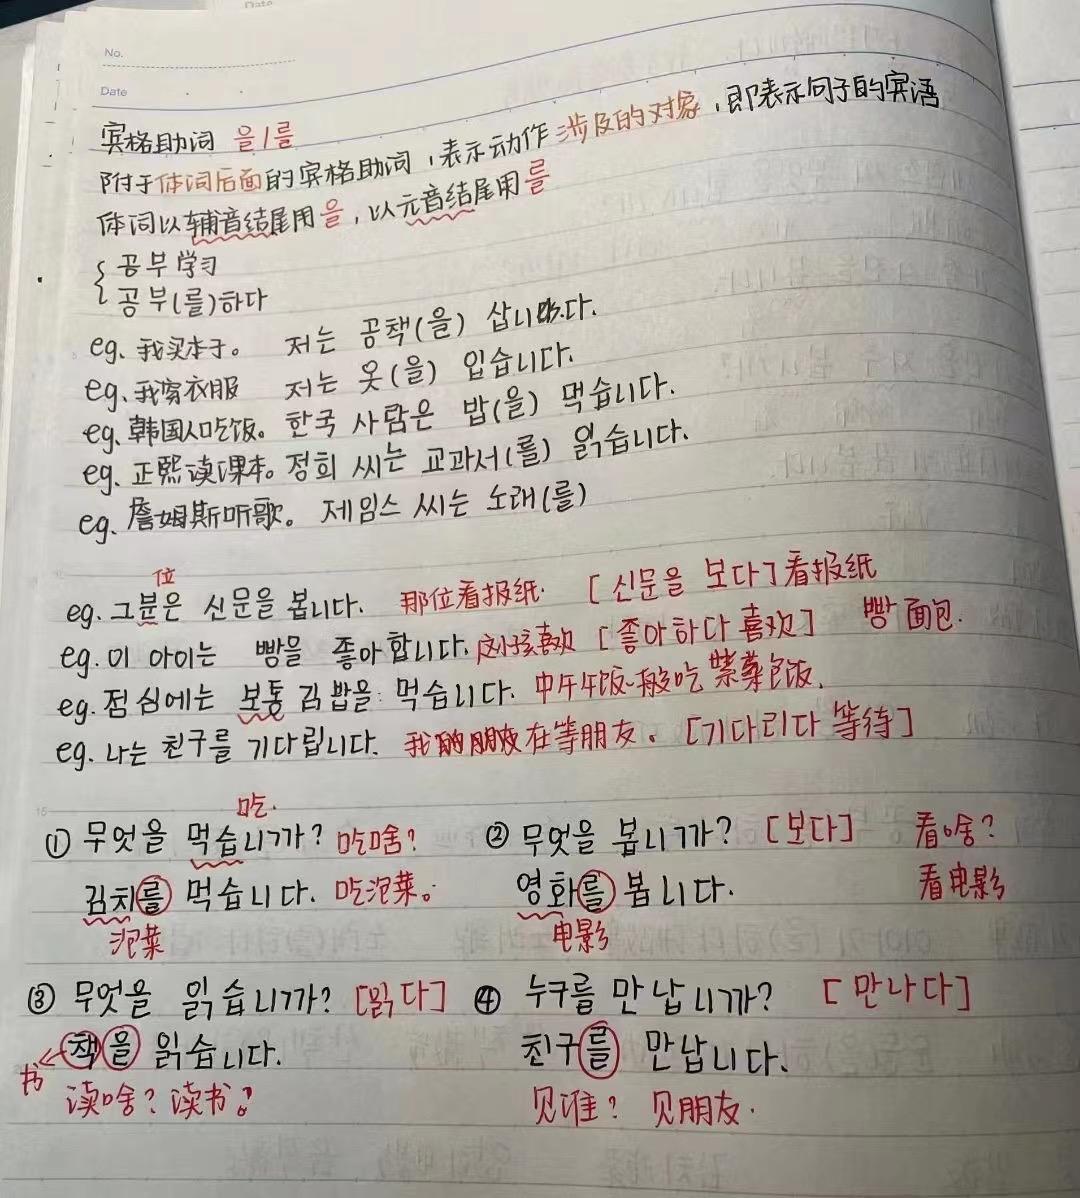 Date
No.
Date
宾格助词 을/를
附于体词后面的宾格助词,表示动作涉及的对象,即表示句子的宾语
体词以辅音结尾用을,以元音结尾用를
공부 学习
공부(를)하다
eg. 我买本子。 저는 공책(을) 삽니다.
eg. 我穿衣服 저는 옷(을) 입습니다.
eg. 韩国人吃饭。 한국 사람은 밥(을) 먹습니다.
eg. 正熙读课本。 정희 씨는 교과서(를) 읽습니다.
eg. 詹姆斯听歌。 제임스 씨는 노래(를)
位
eg. 그분은 신문을 봅니다. 那位看报纸. [신문을 보다]看报纸
eg. 이 아이는 빵을 좋아합니다. 这小孩喜欢 [좋아하다 喜欢] 빵 面包.
eg. 점심에는 보통 김밥을 먹습니다. 中午午饭一般吃紫菜包饭.
eg. 나는 친구를 기다립니다. 我的朋友在等朋友。 [기다리다 等待]
吃.
① 무엇을 먹습니까? 吃啥? ② 무엇을 봅니까? [보다] 看啥?
김치를 먹습니다. 吃泡菜。 영화를 봅니다. 看电影
泡菜 电影
③ 무엇을 읽습니까? [읽다] ④ 누구를 만납니까? [만나다]
책을 읽습니다. 친구를 만납니다.
书
读啥? 读书。 见谁? 见朋友.